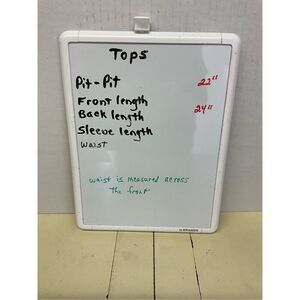 Tops
Pit-Pit 22"
Front length
Back length 24"
Sleeve length
Waist
waist is measured across
the front